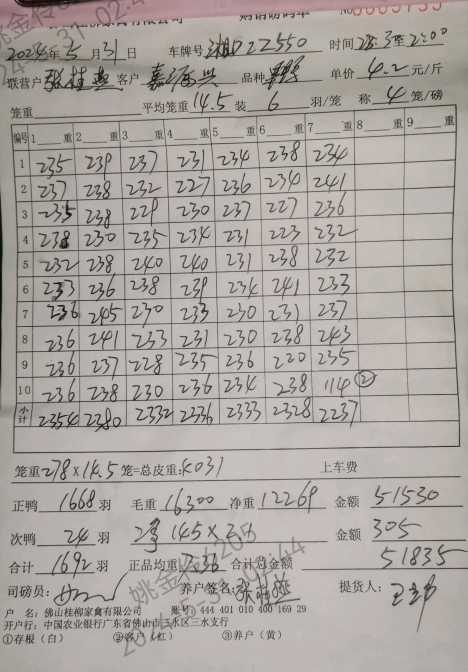 购销磅码单 No
2024年5月31日 车牌号 湘DZ2550 时间 23:3至2:00
联营户 客户 嘉 兴 品种 单价 4.2 元/斤
笼重 平均笼重 14.5 装 6 羽/笼 称 4 笼/磅
编号 1 重 2 重 3 重 4 重 5 重 6 重 7 重 8 重 9 重
1 235 239 237 231 234 238 234
2 237 238 232 227 236 234 241
3 235 238 229 230 237 227 236
4 238 230 235 234 231 223 232
5 232 238 240 240 231 238 232
6 233 236 238 239 234 241 233
7 236 245 230 233 230 231 237
8 236 241 233 231 230 238 243
9 236 237 228 235 236 220 235
10 236 238 230 236 234 238 114 ②
小计 2354 2380 2332 2336 2333 2328 2237
笼重 278×14.5 笼=总皮重: 4031 上车费
正鸭 1668 羽 毛重 16300 净重 12269 金额 51530
次鸭 24 羽 145× 金额 305
合计 1692 羽 正品均重 7.36 合计总金额 51835
司磅员: 养户签名: 提货人:
户 名: 佛山桂柳家禽有限公司 账号: 444 401 010 400 169 29
开户行: 中国农业银行广东省佛山市三水区三水支行
①存根(白) ②客户(红) ③养户(黄)